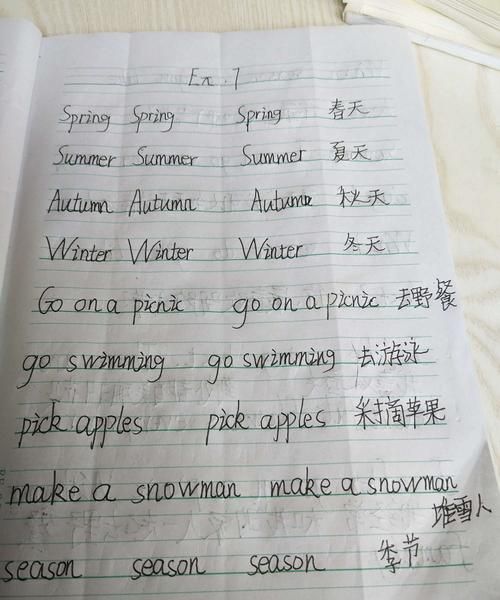 Ex. 7
Spring Spring Spring 春天
Summer Summer Summer 夏天
Autumn Autumn Autumn 秋天
Winter Winter Winter 冬天
Go on a picnic go on a picnic 去野餐
go swimming go swimming 去游泳
pick apples pick apples 采摘苹果
make a snowman make a snowman
堆雪人
season season season 季节